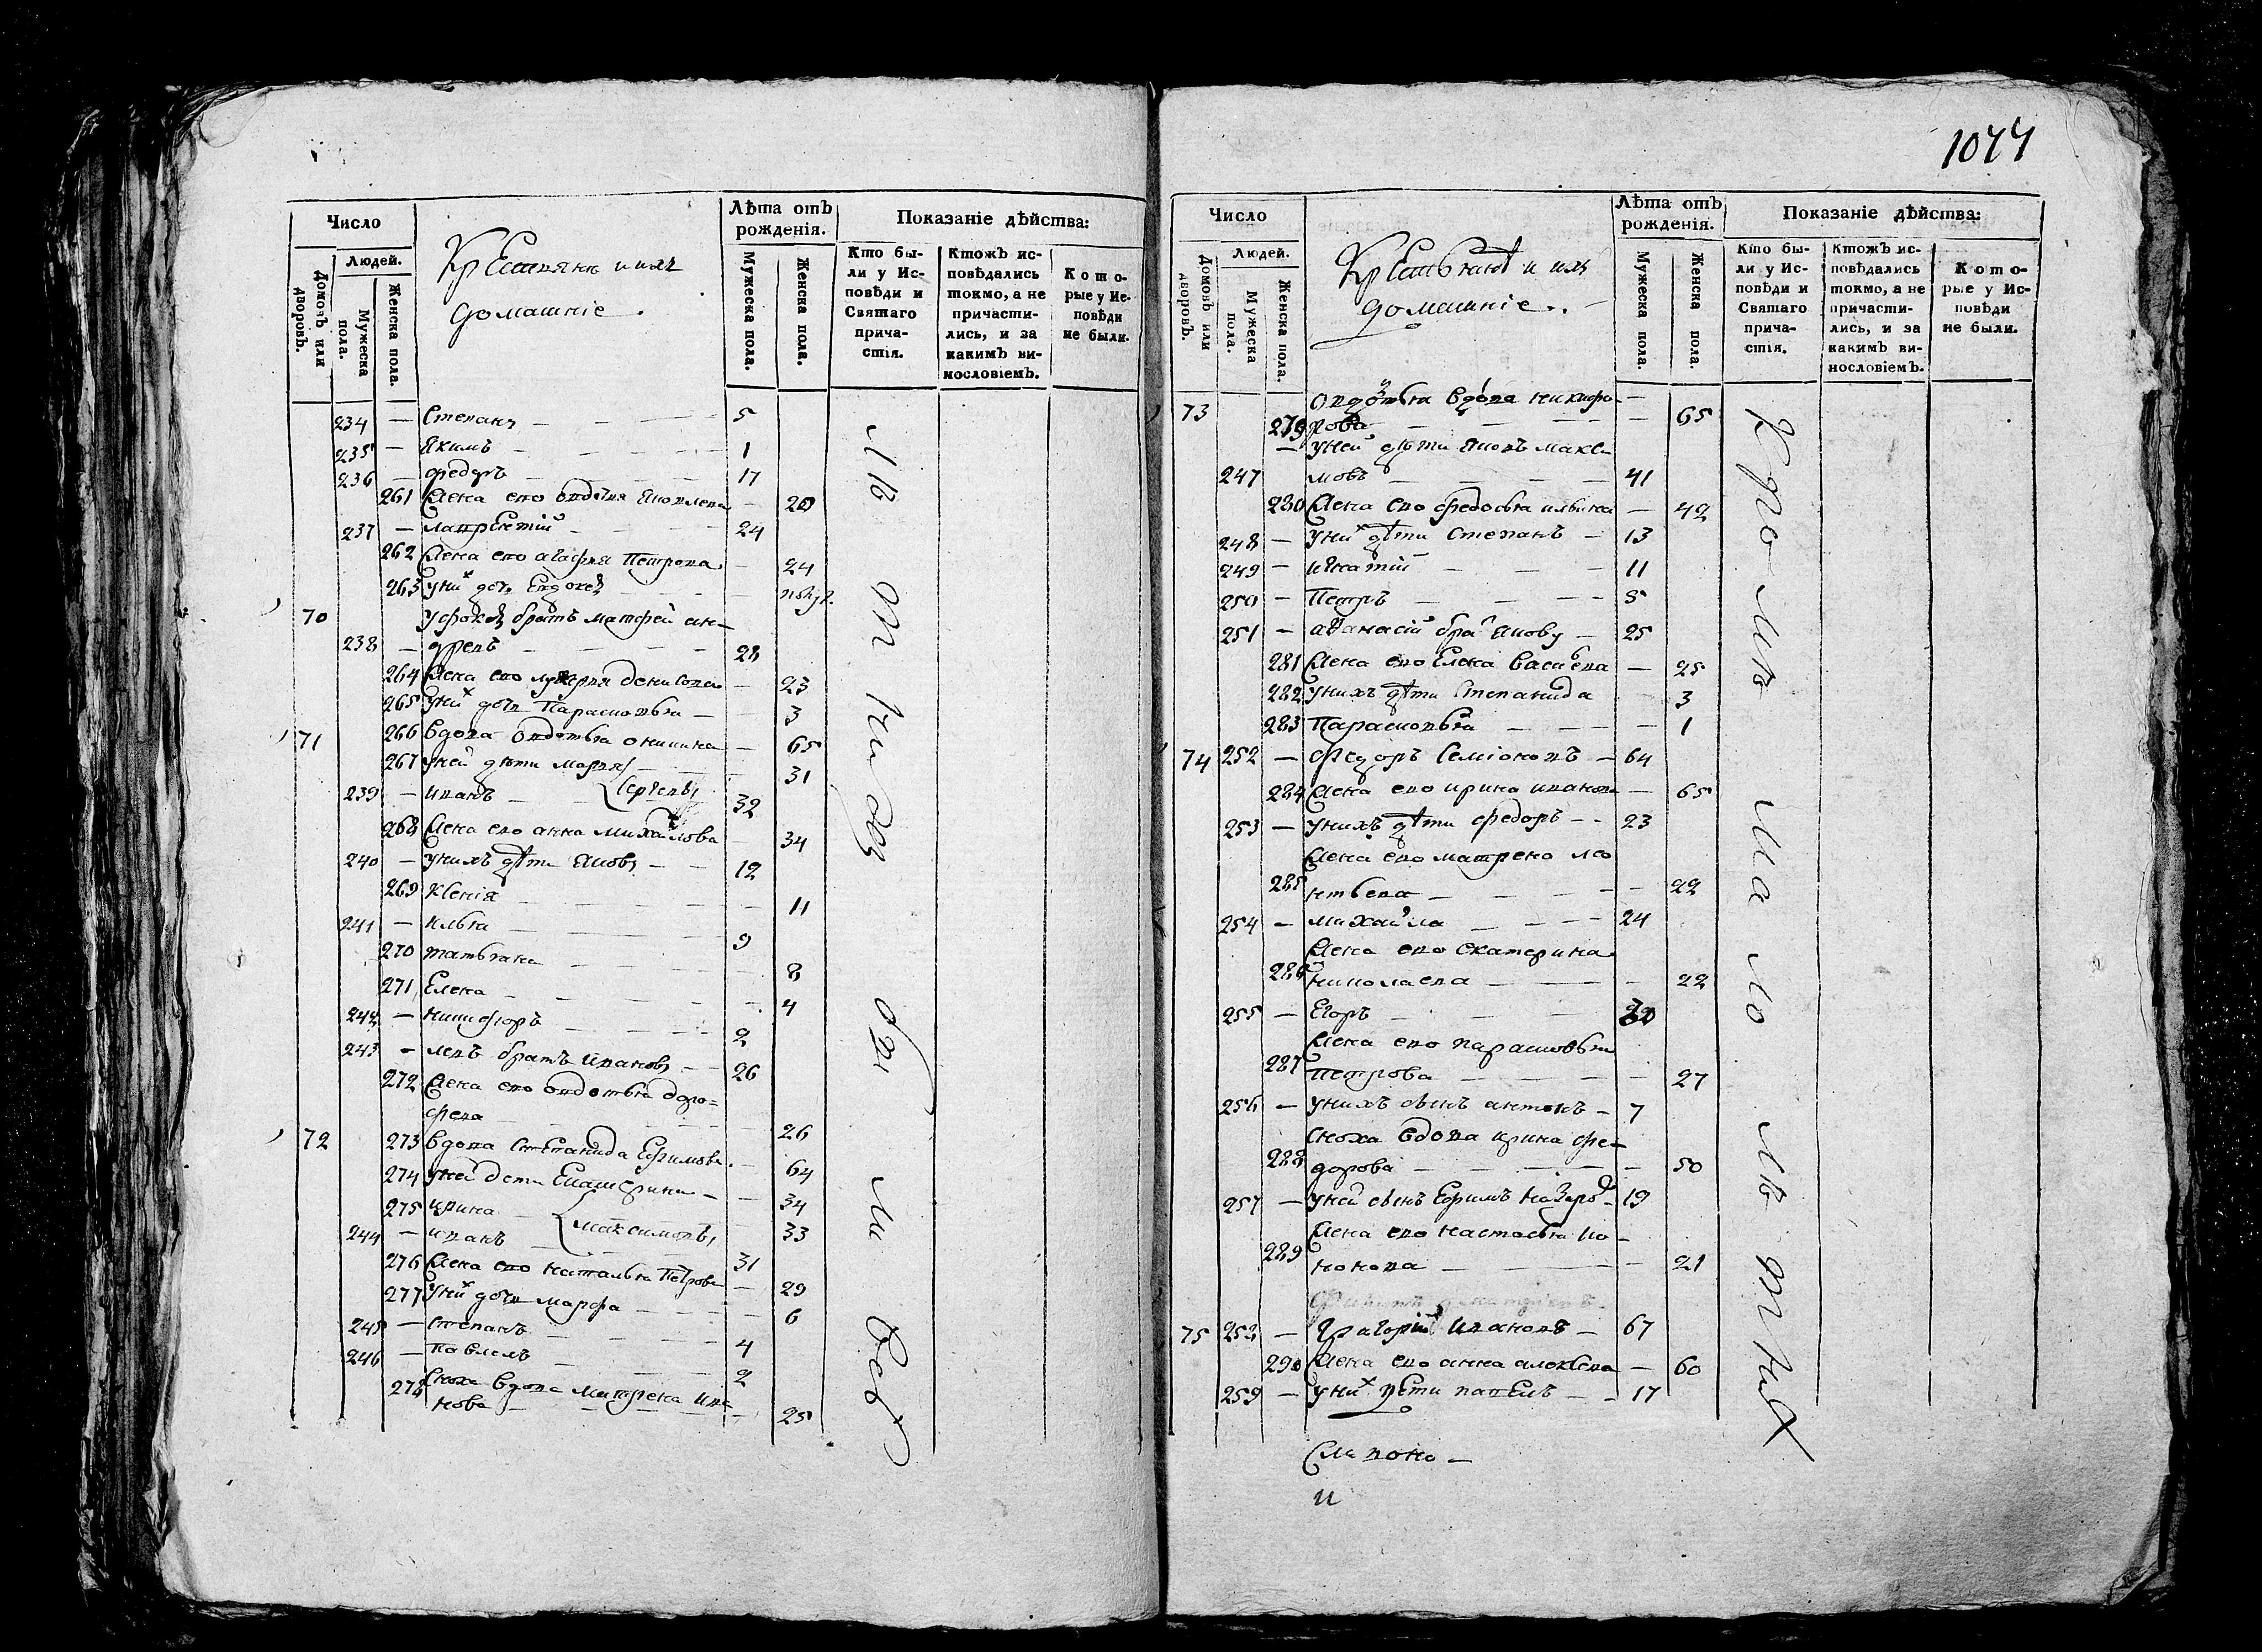 Число
Людей.
Домовъ или дворовъ.
Мужеска пола.
Женска пола.
Крестьяне и ихъ
домашніе.
Лѣта отъ рожденія.
Мужеска пола.
Женска пола.
Показаніе дѣйства:
Кто бы-
ли у Ис-
повѣди и
Святаго
прича-
стія.
Ктожъ ис-
повѣдались
токмо, а не
причасти-
лись, и за
какимъ ви-
нословіемъ.
Кото-
рые у Ис-
повѣди
не были.
234 — Степанъ — 5
235 — Якимъ — 1
236 — Федоръ — 17
261 Жена его Яковлева — 20
237 — Лаврентій — 24
262 Жена его Агафья Петрова — 24
263 у них дочь Евдокея —
70 братъ Матфей Ан-
238 — дреевъ — 28
264 Жена его Лукерья Денисова — 23
265 у них дочь Парасковья — 3
71 266 Вдова Овдотья — 65
267 у ней дети Марья — 31
239 — Иванъ — Сергеевы 32
268 Жена его Анна Михайлова — 34
240 — у нихъ дѣти Яковъ — 12
269 Ксенія — 11
241 — Илья — 9
270 Татьяна — 8
271 Елена — 4
242 — Никифоръ — 2
243 — Левъ братъ Ивановъ — 26
272 Жена его Овдотья Доро-
феева — 26
72 273 Вдова Степанида Ефимова — 64
274 у ней дети Екатерина — 34
275 Ирина — Максимовы 33
244 — Иванъ — 31
276 Жена его Наталья Петрова — 29
277 у них дочь Марфа — 6
245 — Степанъ — 4
246 — Павелъ — 2
278 Сноха вдова Матрена Ива
нова — 25
1077
Число
Людей.
Домовъ или дворовъ.
Мужеска пола.
Женска пола.
Крестьяне и ихъ
домашніе.
Лѣта отъ рожденія.
Мужеска пола.
Женска пола.
Показаніе дѣйства:
Кто бы-
ли у Ис-
повѣди и
Святаго
прича-
стія.
Ктожъ ис-
повѣдались
токмо, а не
причасти-
лись, и за
какимъ ви-
нословіемъ.
Кото-
рые у Ис-
повѣди
не были.
73 Овдотья вдова Никифо-
279 рова — 65
— у ней дѣти Яковъ Макси
247 мовъ — 41
280 Жена его Федосья Ильина — 42
248 — у них дѣти Степанъ — 13
249 — Игнатій — 11
250 — Петръ — 5
251 — Афанасій бра Якову — 25
281 Жена его Елена Васильева — 25
282 у нихъ дѣти Степанида — 3
283 Парасковья — 1
74 252 — Федоръ Семіоновъ — 64
284 Жена его Ирина Иванова — 65
253 — у нихъ дѣти Федоръ — 23
Жена его Матрена Лео
285 нтьева — 22
254 — Михайла — 24
Жена его Екатерина
286 Николаева — 22
255 — Егоръ —
Жена его Парасковья
287 Петрова — 27
256 — у нихъ сынъ Антонъ — 7
Сноха вдова Ирина Фе-
288 дорова — 50
257 — у ней сынъ Ефимъ Назаро — 19
Жена его Настасья Ко-
289 нонова — 21
75 258 — Григорій Ивановъ — 67
290 Жена его Анна Алексеева — 60
259 — у них дети Павелъ — 17